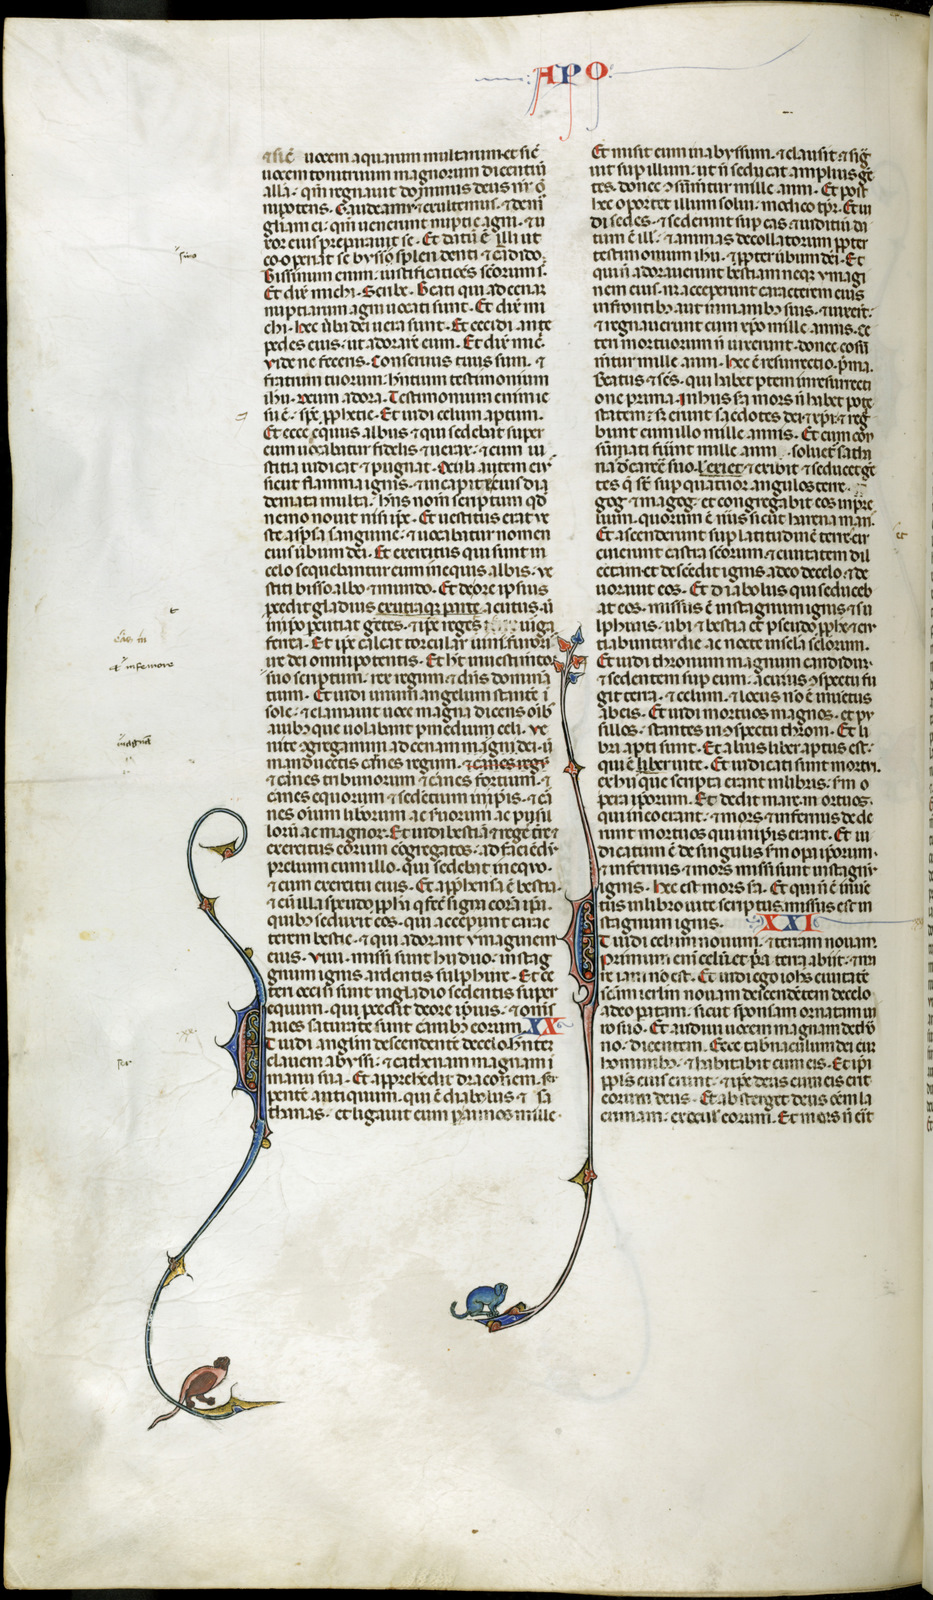 APO
& sic̄ uocem aquarum multarum et sic̄
uocem tonitruum magnorum dicentiū
alla· qm̄ regnauit dominus deus nr̄ ō
nipotens· Gaudeamꝰ & exultemus· & demꝰ
gl̄iam ei· qm̄ uenerunt nuptie agni· & u
xor eius preparauit se· Et datū ē illi ut
co-operiat se bysso splendenti & cādido·
Bissinum enim iustificatiōes sc̄orum s̄·
Et dix̄ michi· Scribe· Beati qui ad cenam
nuptiarum agni uocati sunt· Et dix̄ mi
chi· hec ūba dei uera sunt· Et cecidi ante
pedes eius· ut adorarē eum· Et dix̄ mc̄·
vide ne feceris· Conseruus tuus sum· &
fratrum tuorum· hn̄tium testimonium
ihu· deum adora· Testimonium enim ie
su ē· spc̄ ꝓphetie· Et uidi celum aptum·
Et ecce equus albus & qui sedebat super
eum uocabatur fidelis & uerax· & cum iu
stitia iudicat & pugnat· Oculi autem eiꝰ
sicut flamma ignis· & in capite eius dia
demata multa· hn̄s nom̄ scriptum qd̄
nemo nouit nisi ip̄e· Et uestitus erat ue
ste aspsa sanguine· & uocabatur nomen
eius ūbum dei· Et exercitus qui sunt in
celo sequebantur eum in equis albis· ue
stiti bisso albo & mundo· Et de ore ipsius
ꝓcedit gladius ex utraqꝫ parte acutus· ū
in ip̄o ꝑcutiat gētes· & ip̄e reget uirga
ferrea· Et ip̄e calcat torcular uini furoris
ire dei omnipotentis· Et h̄et in uestimēto
suo scriptum· rex regum· & dn̄s dominā
tium· Et uidi unum angelum stantē ī
sole· & clamauit uoce magna dicens oīb
auibꝰ que uolabant ꝑ medium celi· ve
nite ꝯgregamini ad cenam magni dei· ū
manducetis carnes regum· & carnes regū
& carnes tribunorum & carnes fortium· &
carnes equorum & sedentium in ip̄is· & car
nes oīum liborum ac seruorum ac pusil
lorū ac magnor· Et uidi bestiā & reges tr̄e &
exercitus eorum cōgregatos· ad faciēdū
prelium cum illo· qui sedebat in equo·
& cum exercitu eius· Et apphensa ē bestia·
& cū illa pseudo ꝓph̄a q̄ fēc̄ signa corā ip̄o·
quibꝰ seduxit eos· qui acceperunt carac
terem bestie· & qui adorant ymaginem
eius· viui· missi sunt hi duo· in stag
gnum ignis ardentis sulphure· Et ce
teri occisi sunt in gladio sedentis super
equum· qui ꝓcedit de ore ip̄ius· & omīs
aues saturate sunt carnibꝰ eorum XX
Et uidi anglm̄ descendentē de celo hn̄tem
clauem abyssi· & cathenam magnam ī
manu sua· Et apprehēdit draconem· ser
pentē antiquum· qui ē diabolus· & sa
thanas· et ligauit eum ꝑ annos mille·
Et misit eum in abyssum· & clausit· & siḡ
uit sup illum· ut n̄ seducat amplius gē
tes· donec ꝯsūmtur mille anni· Et post
hec oportet illum solui· modico tp̄r· Et ui
di sedes· & sederunt sup eas· & iuditiū da
tum ē ill· & animas decollatorum ꝓpter
testimonium ihu· & ꝓpter ūbum dei· Et
qui n̄ adorauerunt bestiam neqꝫ ymagi
nem eius· n̄ acceperunt caracterem eius
in frontibꝰ aut in manibꝰ suis· & uixerūt·
& regnauerunt cum xp̄o mille annis· ce
teri mortuorum n̄ uixerunt· donec cōsū
mētur mille anni· hec ē resurrectio p̄ma·
Beatus & sc̄s· qui habet ꝑtem in resurrecti
one prima· In hiis sa mors n̄ habet pote
statem· s; erunt sacerdotes dei & xp̄i· & reḡ
bunt cum illo mille annis· Et cum cōn
sūmati fūint mille anni· soluet̄ satha
nas de carcē suo· & exiet & exibit & seducet gē
tes q̄ st̄ sup quatuor angulos terre·
gog & magog· et congregabit eos in pre
lium· quorum ē nūus sicut harena mar·
Et ascenderunt sup latitudinē terre· cir
cuierunt castra sc̄orum· & ciuitatem dil
ectam et descēdit ignis a deo de celo· & de
uorauit eos· Et diabolus qui seduceb
at eos· missus ē in stagnum ignis & su
lphuris· ubi & bestia et pseudo ꝓph̄e & cr
uciabuntur die ac nocte in sc̄la sc̄lorum·
Et uidi thronum magnum candidum·
& sedentem sup eum· a cuius ꝯspectu fu
git terra· & celum· & locus nō ē inuētus
ab eis· Et uidi mortuos magnos· et pu
sillos· stantes in ꝯspectu throni· Et li
bri apti sunt· Et alius liber aptus est·
qui ē liber uite· Et iudicati sunt mortui
ex hiis que scripta erant in libris· s̄m o
pera ip̄orum· Et dedit mare mortuos·
qui in eo erant· & mors & infernus dede
runt mortuos qui in ip̄is erant· Et iu
dicatum ē de singulis s̄m opa ip̄orum·
& infernus & mors missi sunt in stagnū
ignis· hec est mors sa· Et qui n̄ ē inue
tus in libro uite scriptus missus est in
stagnum ignis· XXI
Et uidi celum nouum· & terram nouam·
primum enī celū et p̄a terra abiit· & ma
re iam nō est· Et ego iohs uidi ciuitatē
sc̄am ierl̄m nouam descendētem de celo
a deo paratam· sicut sponsam ornatam ui
ro suo· Et audiui uocem magnam de thro
no· dicentem· Ecce tabnaculum dei cum
hominibꝰ· & habitabit cum eis· Et ip̄i
ppl̄s eius erunt· & ip̄e deus cum eis erit
eorum deus· Et absterget deus oēm la
crimam· ex oculis eorum· Et mors n̄ erit